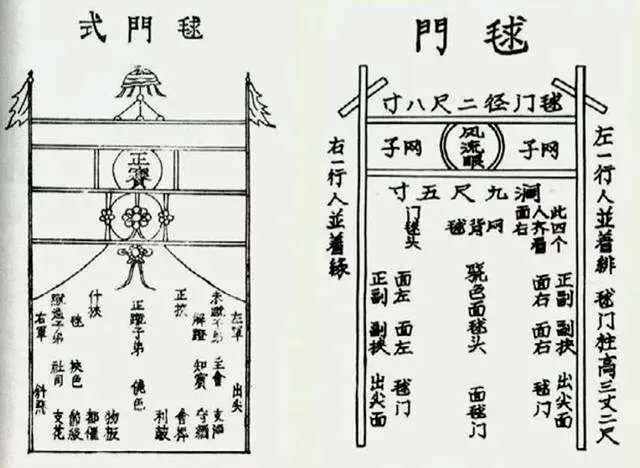 毬門式
正賽
左軍
出尖
主會
支酒
解蹬
知賓
守網
正挾
正蹬子弟
僥色
物板
什挾
都催
毬
挾色
節級
社司
支花
右軍
斜飛
毬門
毬门径二尺八寸
网子
风流眼
网子
濶九尺五寸
左一行人並着緋 毬门柱高三丈二尺
此四个
人齐看
面右
正副 副挾 出尖面
面右 面右 毬门
网背毬
骁色面毬头 面毬门
门毬头
面左 面左 毬门
正副 副挾 出尖面
右一行人並着綠